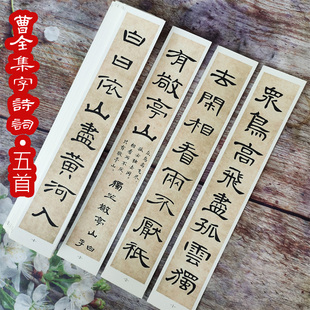 曹全集字詩詞·五首
衆鳥高飛盡孤雲獨
去閑相看兩不厭祇
有敬亭山
獨坐敬亭山
白日依山盡黄河入